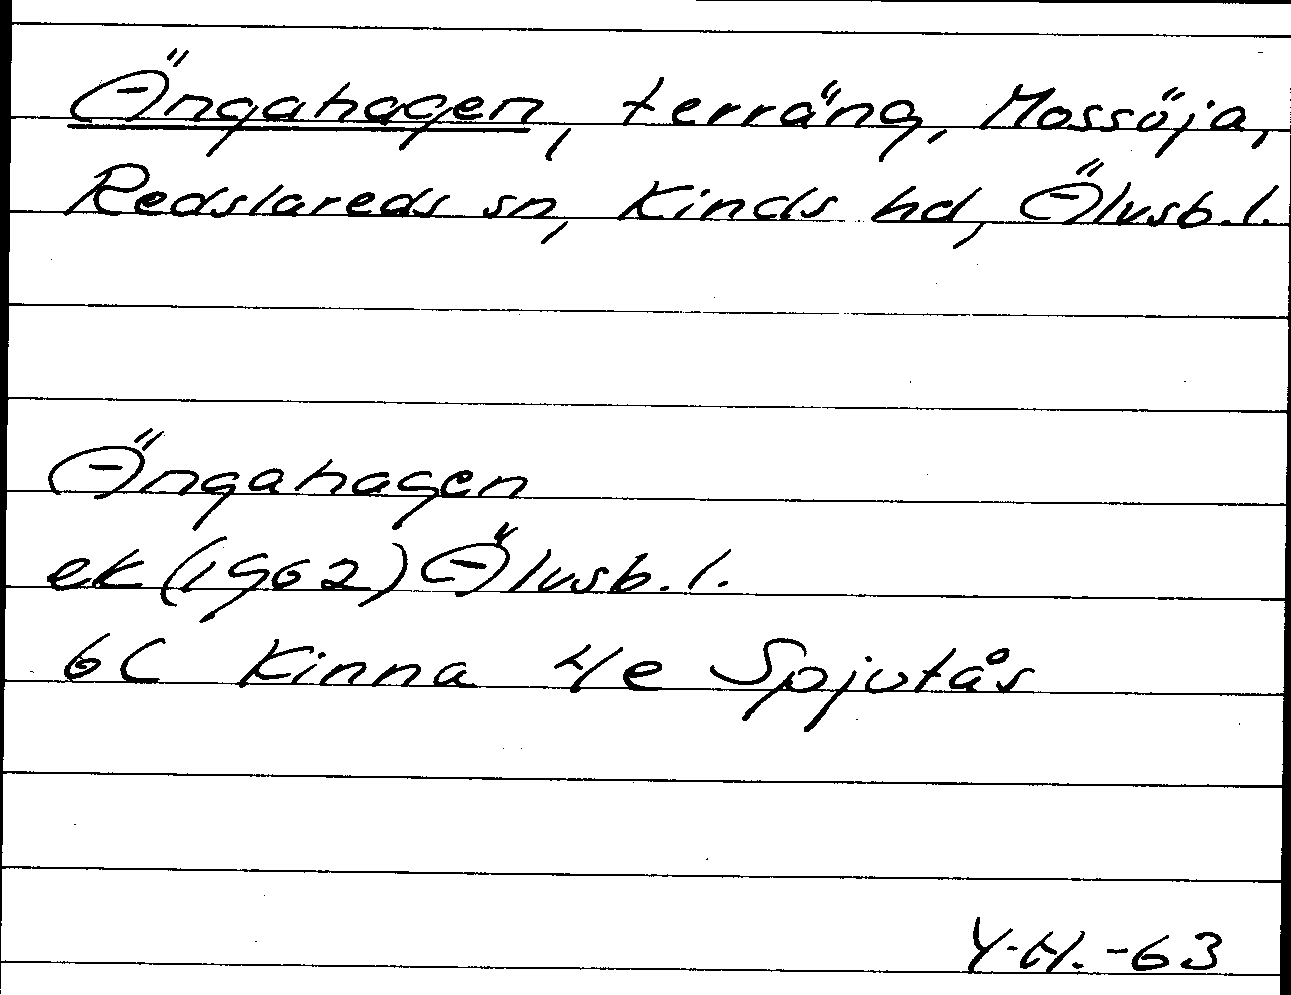 Ängahagen, terräng, Mossöja,
Redslareds sn, Kinds hd, Älvsb. l.
Ängahagen
ek (1962) Älvsb. l.
6C Kinna 4e Spjutås
Y-H. -63